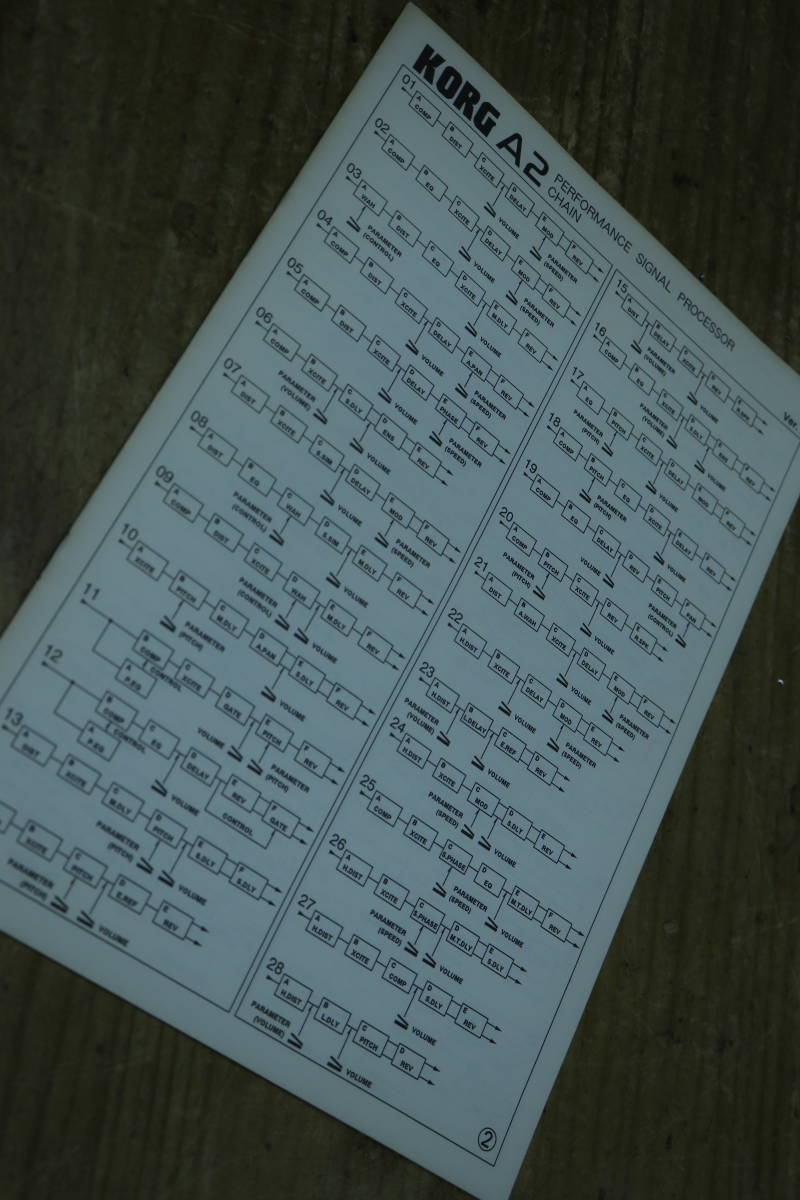 KORG A2 PERFORMANCE SIGNAL PROCESSOR
CHAIN
Ver.
01
A COMP B DIST C XCITE D DELAY E MOD F REV
VOLUME PARAMETER (SPEED)
02
A COMP B EQ C XCITE D DELAY E MOD F REV
VOLUME PARAMETER (SPEED)
03
A WAH B DIST C EQ D XCITE E M.DLY F REV
PARAMETER (CONTROL) VOLUME
04
A COMP B DIST C XCITE D DELAY E A.PAN F REV
VOLUME PARAMETER (SPEED)
05
A COMP B DIST C XCITE D DELAY E PHASE F REV
VOLUME PARAMETER (SPEED)
06
A COMP B XCITE C S.DLY D ENS E REV
PARAMETER (VOLUME) VOLUME
07
A DIST B XCITE C S.SIM D DELAY E MOD F REV
VOLUME PARAMETER (SPEED)
08
A DIST B EQ C WAH D S.SIM E M.DLY F REV
PARAMETER (CONTROL) VOLUME
09
A COMP B DIST C XCITE D WAH E M.DLY F REV
PARAMETER (CONTROL) VOLUME
10
A XCITE B PITCH C M.DLY D A.PAN E S.DLY F REV
PARAMETER (PITCH) VOLUME
11
B COMP C XCITE D GATE E PITCH F REV
A P.EQ CONTROL
VOLUME PARAMETER (PITCH)
12
B COMP C EQ D DELAY E REV F GATE
A P.EQ CONTROL
VOLUME CONTROL
13
A DIST B XCITE C M.DLY D PITCH E S.DLY F S.DLY
PARAMETER (PITCH) VOLUME
B XCITE C PITCH D E.REF E REV
PARAMETER (PITCH) VOLUME
15
A DIST B DELAY C XCITE D REV E R.SPK
PARAMETER (VOLUME) VOLUME
16
A COMP B EQ C XCITE D S.DLY E F REV
PARAMETER (VOLUME) VOLUME
17
A EQ B PITCH C XCITE D DELAY E MOD F REV
PARAMETER (PITCH) VOLUME
18
A COMP B PITCH C EQ D XCITE E DELAY F REV
PARAMETER (PITCH) VOLUME
19
A COMP B EQ C DELAY D REV E PITCH F PAN
VOLUME PARAMETER (CONTROL)
20
A COMP B PITCH C XCITE D REV E R.SPK
PARAMETER (PITCH) VOLUME
21
A DIST B A.WAH C XCITE D DELAY E MOD F REV
VOLUME PARAMETER (SPEED)
22
A H.DIST B XCITE C DELAY D MOD E REV
VOLUME PARAMETER (SPEED)
23
A H.DIST B L.DELAY C E.REF D REV
PARAMETER (VOLUME) VOLUME
24
A H.DIST B XCITE C MOD D S.DLY E REV
PARAMETER (SPEED) VOLUME
25
A COMP B XCITE C S.PHASE D EQ E M.T.DLY F REV
PARAMETER (SPEED) VOLUME
26
A H.DIST B XCITE C S.PHASE D M.T.DLY E S.DLY
PARAMETER (SPEED) VOLUME
27
A H.DIST B XCITE C COMP D S.DLY E REV
VOLUME
28
A H.DIST B L.DLY C PITCH D REV
PARAMETER (VOLUME) VOLUME
②